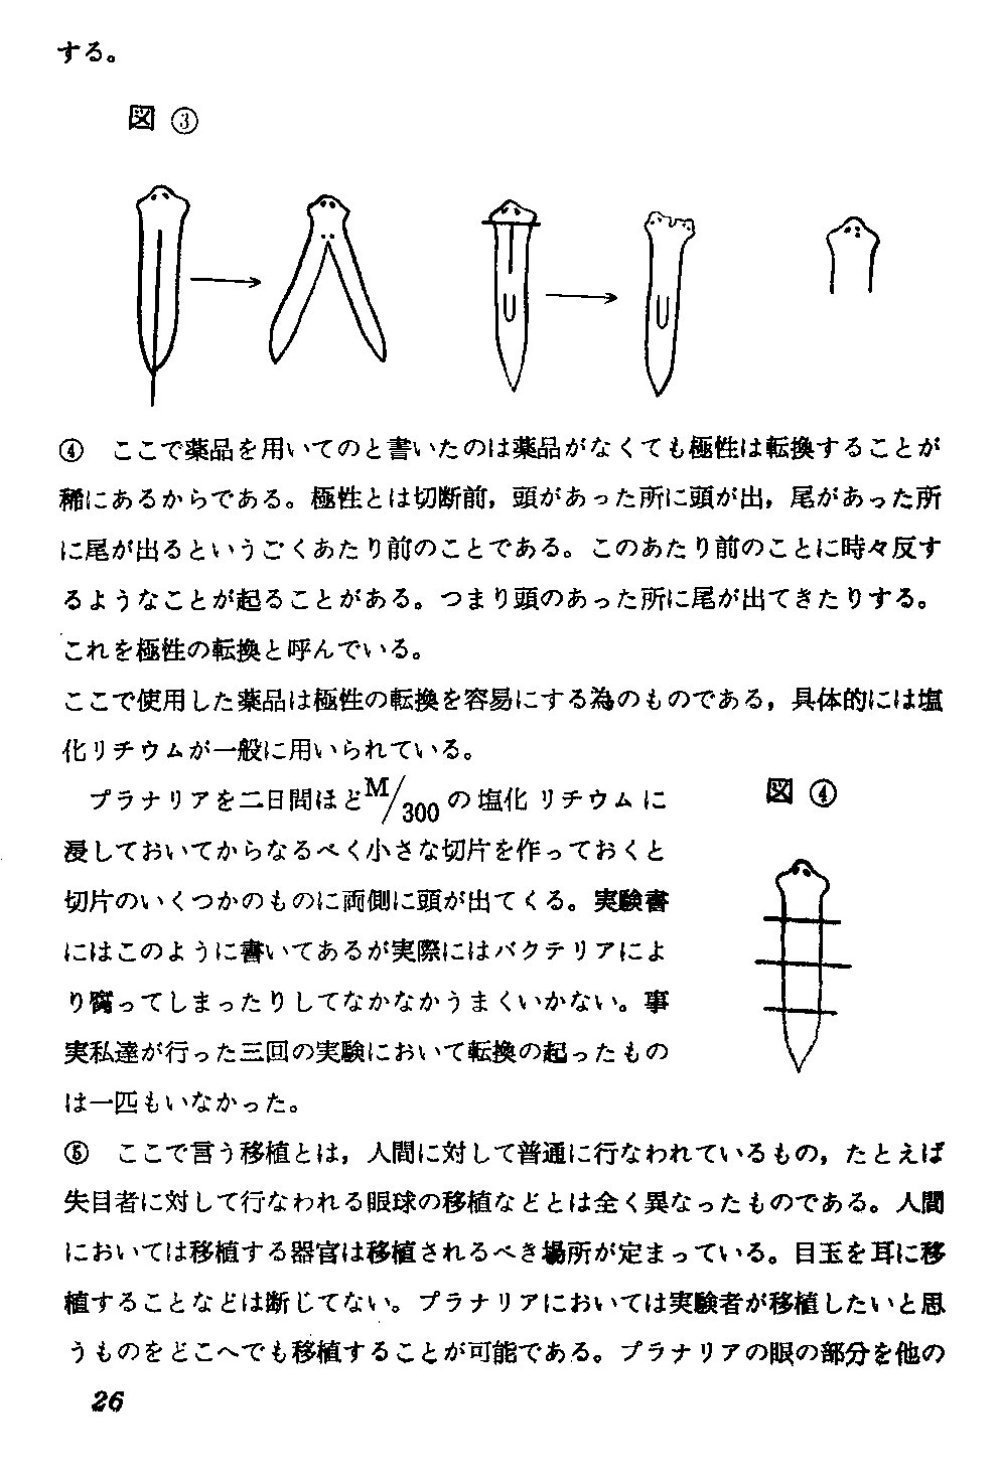 する。
図 ③
④ ここで薬品を用いてのと書いたのは薬品がなくても極性は転換することが
稀にあるからである。極性とは切断前，頭があった所に頭が出，尾があった所
に尾が出るというごくあたり前のことである。このあたり前のことに時々反す
るようなことが起ることがある。つまり頭のあった所に尾が出てきたりする。
これを極性の転換と呼んでいる。
ここで使用した薬品は極性の転換を容易にする為のものである，具体的には塩
化リチウムが一般に用いられている。
プラナリアを二日間ほどM/300の塩化リチウムに
図 ④
浸しておいてからなるべく小さな切片を作っておくと
切片のいくつかのものに両側に頭が出てくる。実験書
にはこのように書いてあるが実際にはバクテリアによ
り腐ってしまったりしてなかなかうまくいかない。事
実私達が行った三回の実験において転換の起ったもの
は一匹もいなかった。
⑤ ここで言う移植とは，人間に対して普通に行なわれているもの，たとえば
失目者に対して行なわれる眼球の移植などとは全く異なったものである。人間
においては移植する器官は移植されるべき場所が定まっている。目玉を耳に移
植することなどは断じてない。プラナリアにおいては実験者が移植したいと思
うものをどこへでも移植することが可能である。プラナリアの眼の部分を他の
26